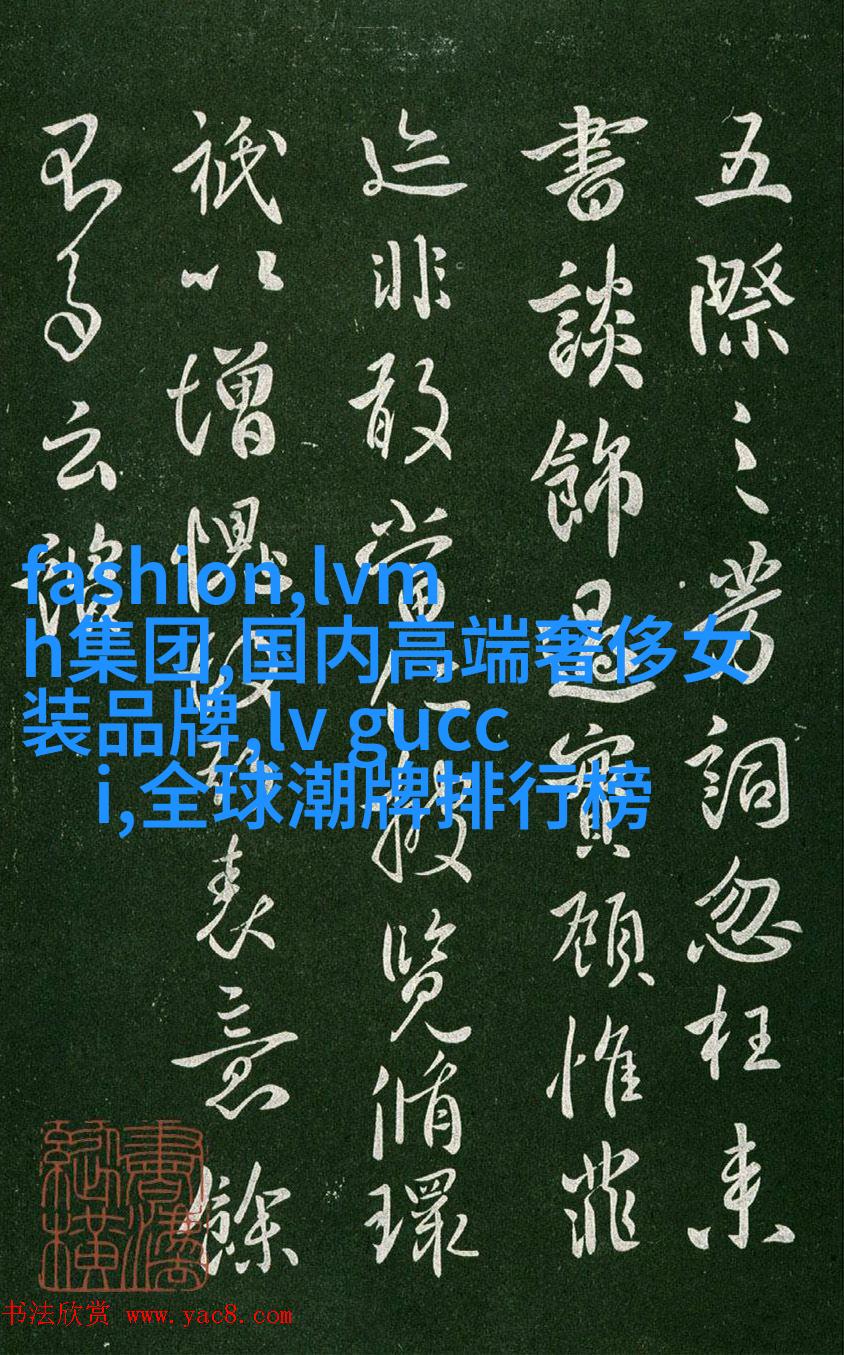 五際之勞詞忽枉來
書談飾過實顧惟菲
迹非敢當仁披覽循環
祇以增愧表意餘
云
fashion,lvm
h集团,国内高端奢侈女
装品牌,lv gucc
i,全球潮牌排行榜
书法欣赏 www.yac8.com